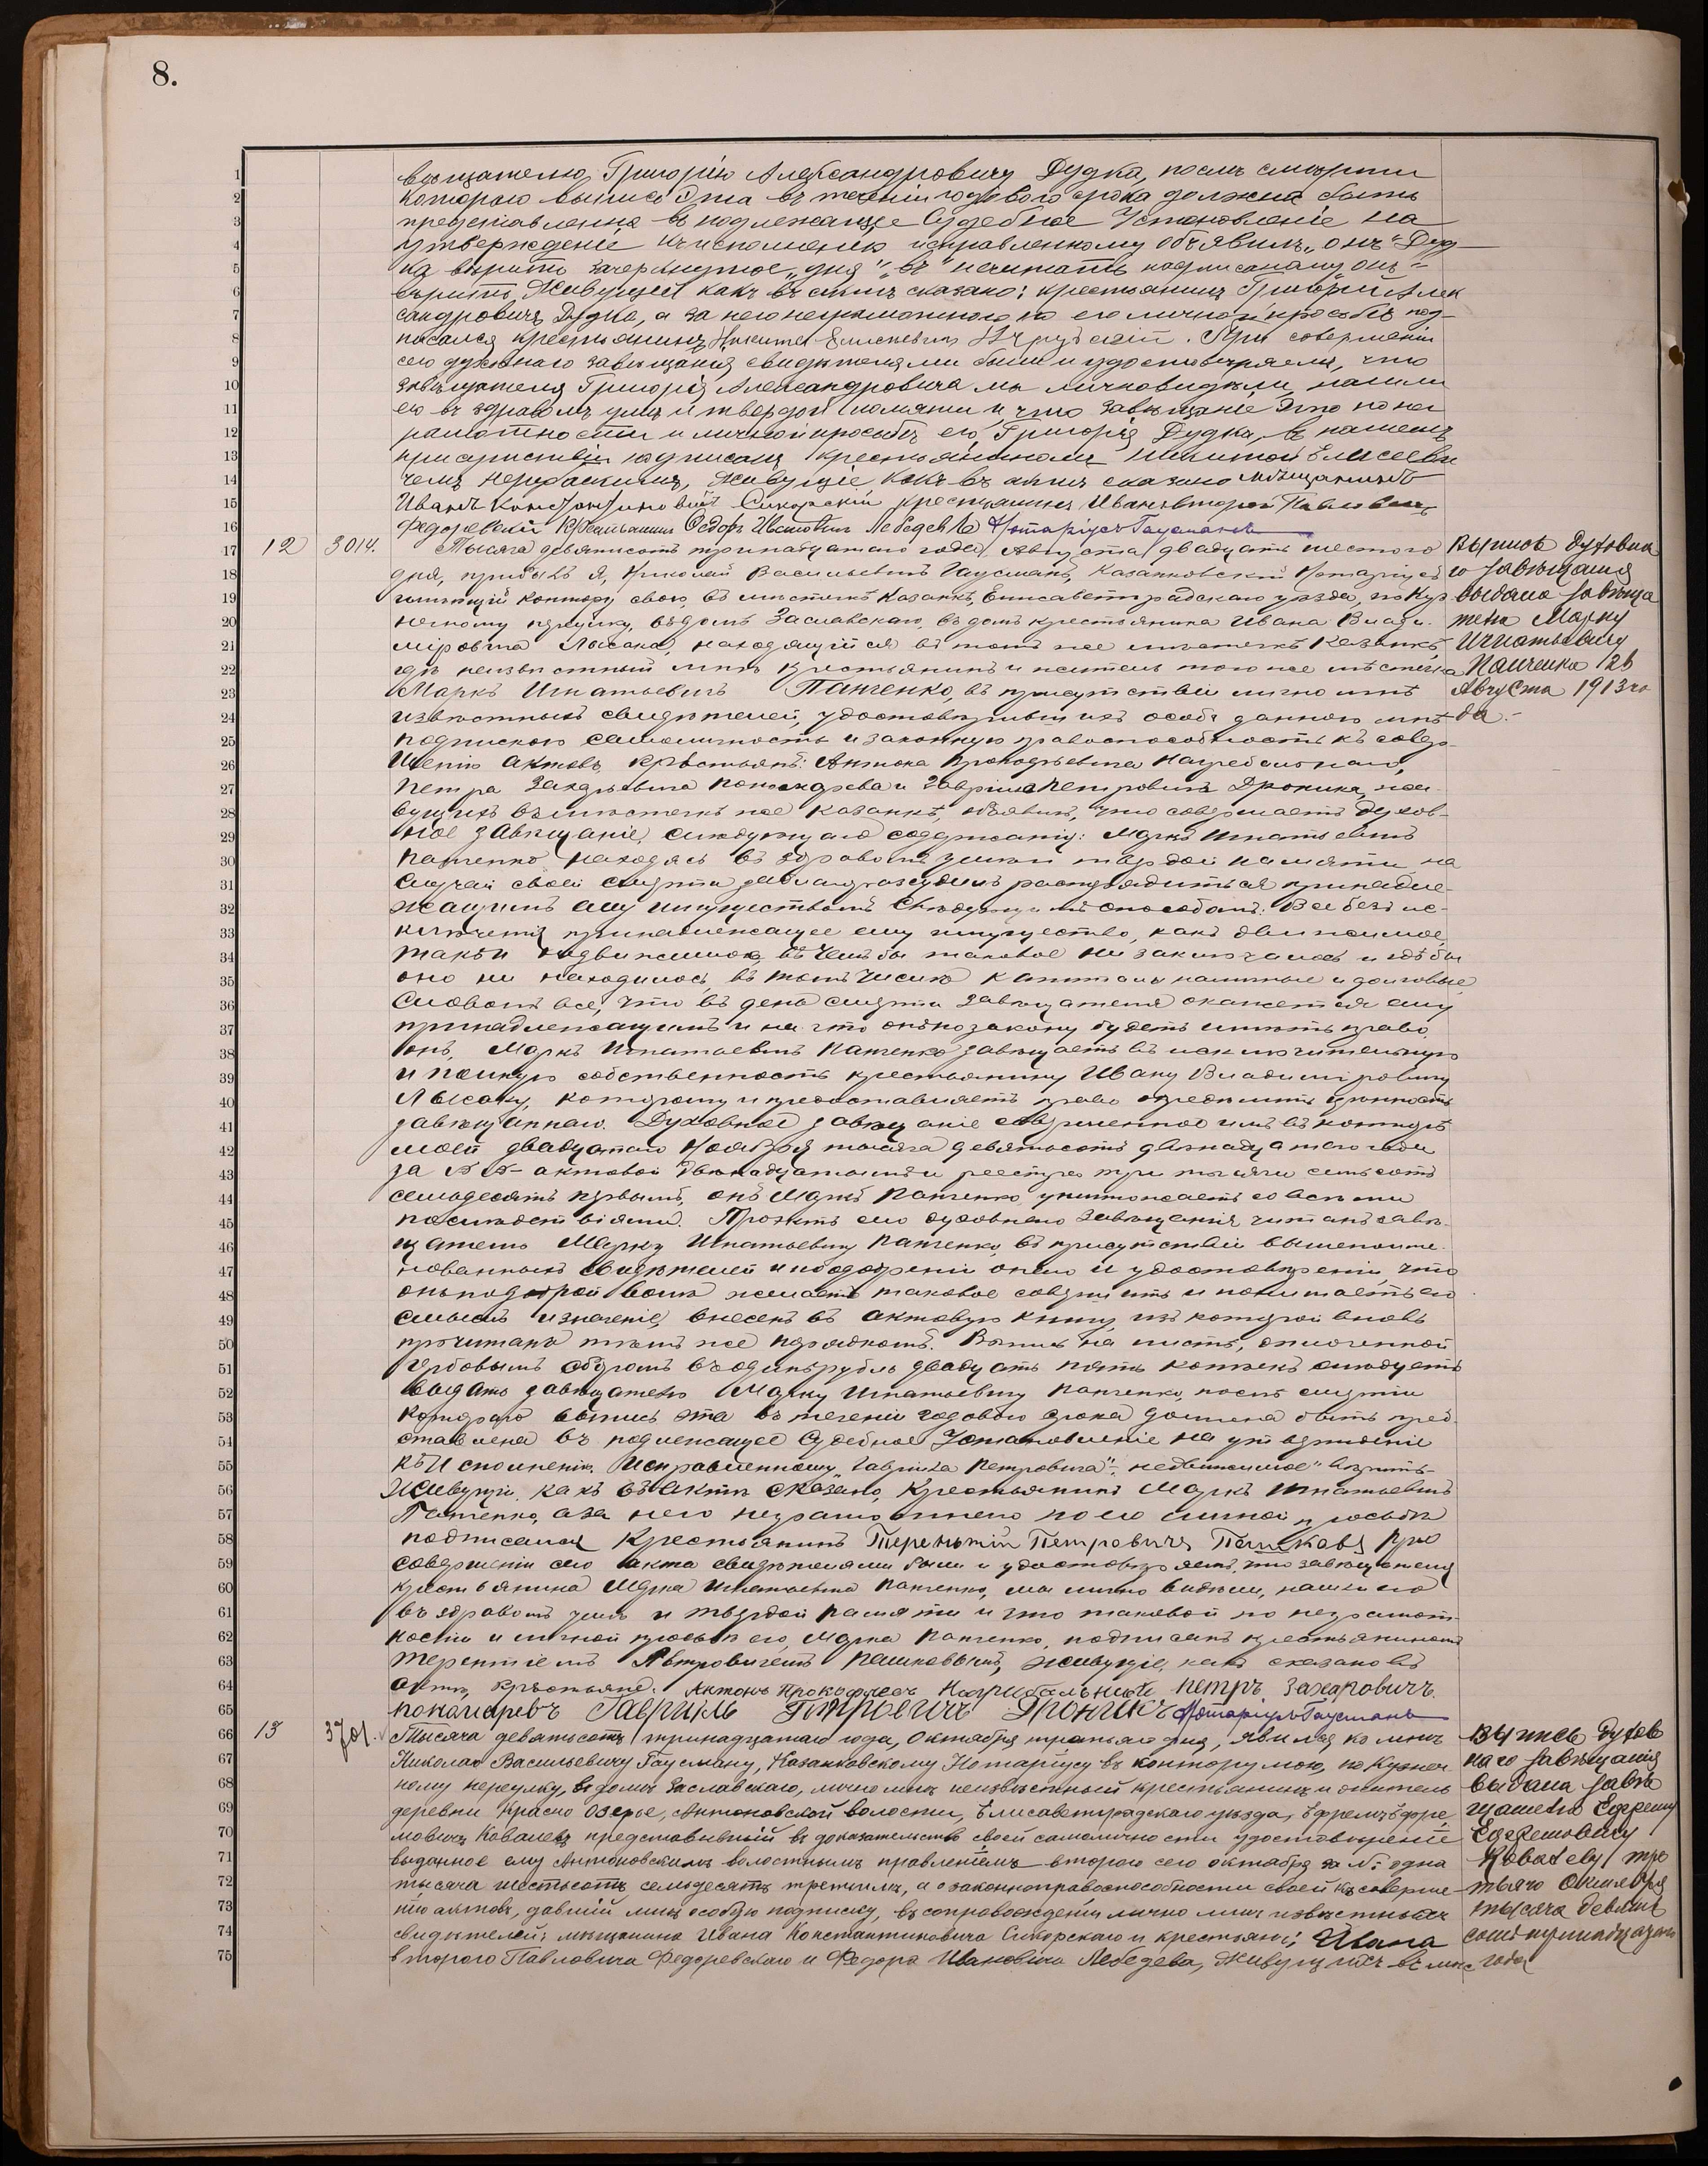 8.
1 вѣщателю, Григорію Александровичу Дудка, послѣ смерти
2 котораго выпись эта въ теченіи годового срока должна быть
3 представлена въ подлежащее Судебное Установленіе на
4 утвержденіе къ исполненію исправленному объявилъ, онъ "Дуд-
5 ка вѣрить зачеркнутое „дня", „въ" нечитать надписаному онъ=
6 вѣрить, Живущій какъ въ актѣ сказано: крестьянинъ Григорій Алек
7 сандровичъ Дудка, а за него неграмотнаго по его личной просьбѣ под-
8 писался крестьянинъ Никита Елисеевичъ. При совершеніи
9 сего духовнаго завѣщанія свидѣтелями были и удостовѣряемъ, что
10 завѣщателя Григорія Александровича мы лично видѣли, нашли
11 его въ здравомъ умѣ и твердой памяти и что завѣщаніе это по нег
12 рамотности и личной просьбѣ его, Григорія Дудка, въ нашемъ
13 присутствіи подписалъ крестьяниномъ Никитой Елисееви
14 чемъ, живущіе какъ въ актѣ сказано мѣщанинъ
15 Иванъ Константиновичъ Сикорскій крестьянинъ Иванъ второй Павловичъ
16 Федоревскій Крестьянинъ Федоръ Ивановичъ Лебедевъ Нотаріусъ Гаусманъ
17 12 3014. Тысяча девятьсотъ тринадцатаго года, Августа двадцать шестого Выпись духовна
18 дня, прибылъ я, Николай Васильевичъ Гаусманъ, Казанковскій Нотаріусъ го завѣщанія
19 имѣющій контору свою, въ мѣстечкѣ Казанкѣ, Елисаветградскаго уѣзда, по Куз выдана завѣща
20 нечному переулку, въ домѣ Заславскаго, въ домъ крестьянина Ивана Влади- телю Марку
21 міровича Лысака, находящійся въ томъ же мѣстечкѣ Казанкѣ, Игнатьевичу
22 гдѣ неизвѣстный мнѣ крестьянинъ и житель того же мѣстечка Панченко 26
23 Маркъ Игнатьевичъ Панченко, въ присутствіи лично мнѣ Августа 1913 го
24 извѣстныхъ свидѣтелей, удостовѣрившихъ особо данною мнѣ да.-
25 подпискою самоличность и законную правоспособность къ совер-
26 шенію актовъ, крестьянъ: Антона Прокофьевича Нагребельнаго,
27 Петра Захаровича Понамарева и Гавріила Петровича Дроника, жи-
28 вущихъ въ мѣстечкѣ же Казанкѣ, объявилъ, что совершаетъ Духов-
29 ное завѣщаніе, слѣдующаго содержанія: Маркъ Игнатьевичъ
30 Панченко находясь въ здравомъ умѣ и твердой памяти на
31 случай своей смерти заблагоразсудилъ распорядиться принадле-
32 жащимъ ему имуществомъ слѣдующимъ способомъ: Все безъ ис-
33 ключенія принадлежащее ему имущество, какъ движимое,
34 такъ и недвижимое, въ чемъ бы таковое ни заключалось и гдѣ бы
35 оно ни находилось, въ томъ числѣ капиталы наличные и долговые,
36 словомъ все, что въ день смерти завѣщателя окажется ему
37 принадлежащимъ и на что онъ по закону будетъ имѣть право,
38 онъ, Маркъ Игнатьевичъ Панченко завѣщаетъ въ исключительную
39 и полную собственность крестьянину Ивану Владиміровичу
40 Лысаку, которому и предоставляетъ право опредѣлить цѣнность
41 завѣщаннаго. Духовное завѣщаніе совершенное имъ въ конторѣ
42 моей двадцатаго Ноября тысяча девятьсотъ двѣнадцатаго года
43 за №№ актовой двѣнадцатымъ и реестра три тысячи семьсотъ
44 семьдесятъ первымъ, онъ Маркъ Панченко, уничтожаетъ со всѣми
45 послѣдствіями. Проэктъ сего духовнаго завѣщанія читанъ завѣ-
46 щателю Марку Игнатьевичу Панченко, въ присутствіи вышепоиме-
47 нованныхъ свидѣтелей и по одобреніи онаго и удостовѣреніи, что
48 онъ по доброй волѣ желаетъ таковое совершить и понимаетъ его
49 смыслъ и значеніе, внесенъ въ актовую книгу, изъ которой вновь
50 прочитанъ тѣмъ же порядкомъ. Выпись на листѣ, оплоченной
51 гербовымъ сборомъ въ одинъ рубль двадцать пять копѣекъ слѣдуетъ
52 выдать завѣщателю Марку Игнатьевичу Панченко, послѣ смерти
53 котораго выпись эта въ теченіи годового срока должна быть пред-
54 ставлена въ подлежащее Судебное Установленіе на утвержденіе
55 къ исполненію. Исправленному „Гавріила Петровича", недвижимое" вѣрить-
56 Живущій, какъ въ актѣ сказано, Крестьянинъ Маркъ Игнатьевичъ
57 Панченко, а за него неграмотнаго по его личной просьбѣ
58 подписался Крестьянинъ Терентій Петровичъ Пашковъ При
59 совершеніи сего акта свидѣтелями были и удостовѣряемъ, что завѣщателя
60 крестьянина Марка Игнатьевича Панченко, мы лично видѣли, нашли его
61 въ здравомъ умѣ и твердой памяти и что таковой по неграмот-
62 ности и личной просьбѣ его, Марка Панченко, подписанъ крестьяниномъ
63 Терентіемъ Петровичемъ Пашковымъ, живущіе, какъ сказано въ
64 актѣ, крестьяне: Антонъ Прокофьевъ Нагрибальный Петръ Захаровичъ
65 Понамаревъ Гаврилъ Петровичъ Дроникъ Нотаріусъ Гаусманъ
66 13 3701. Тысяча девятьсотъ тринадцатаго года, Октября третьяго дня, явился ко мнѣ Выпись духов
67 Николаю Васильевичу Гаусману, Казанковскому Нотаріусу въ контору мою, по Кузнеч наго завѣщанія
68 ному переулку, въ домѣ Заславскаго, лично мнѣ неизвѣстный крестьянинъ и житель выдана завѣ
69 деревни Красно Озерье, Антоновской волости, Елисаветградскаго уѣзда, Ефремъ Ефре- щателю Ефрему
70 мовичъ Ковалевъ представившій въ доказательство своей самоличности удостовѣреніе Ефремовичу
71 выданное ему Антоновскимъ волостнымъ правленіемъ второго сего октября за № одна Ковалеву тре
72 тысяча шестьсотъ семьдесятъ третьимъ, а о законной правоспособности своей къ соверше- тьяго Октября
73 нію актовъ, давшій мнѣ особую подписку, въ сопровожденіи лично мнѣ извѣстныхъ тысяча девять
74 свидѣтелей: мѣщанина Ивана Константиновича Сикорскаго и крестьянъ: Ивана сотъ тринадцатаго
75 второго Павловича Федоревскаго и Федора Ивановича Лебедева, живущихъ въ мѣс года